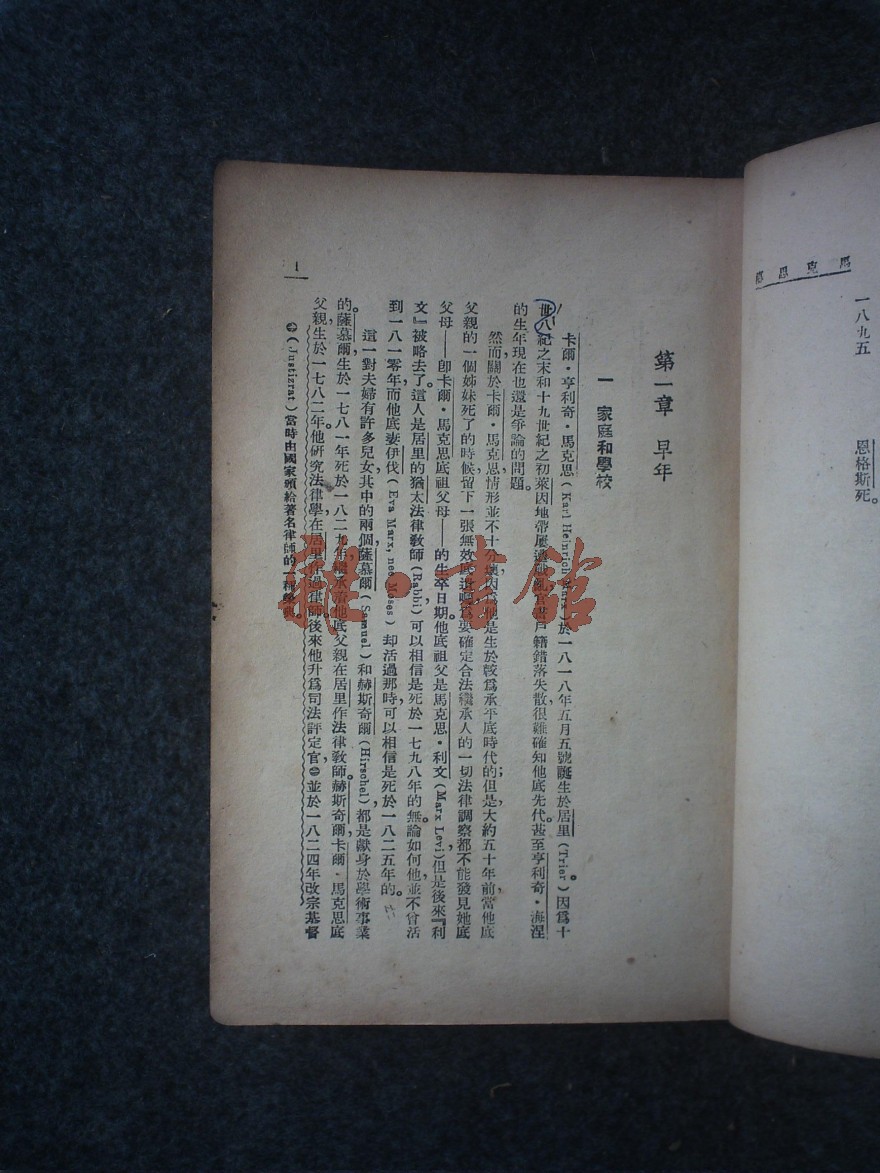 一八九五
恩格斯死。
第一章 早年
一 家庭和學校
卡爾·亨利奇·馬克思(Karl Heinrich Marx)於一八一八年五月五號誕生於居里(Trier)。因爲十
八世紀之末和十九世紀之初,萊因地帶屢遭 戶籍錯落失散,很難確知他底先代。甚至亨利奇·海涅
的生年現在也還是爭論的問題。
然而關於卡爾·馬克思,情形並不十分壞,因爲他是生於較爲承平底時代的;但是,大約五十年前當他底
父親的一個姊妹死了的時候,留下一張無效底遺囑,爲要確定合法繼承人的一切法律調察都不能發見她底
父母——卽卡爾·馬克思底祖父母——的生卒日期。他底祖父是馬克思·利文(Marx Levi),但是後來『利
文』被略去了。這人是居里的猶太法律教師(Rabbi),可以相信是死於一七九八年的。無論如何,他並不曾活
到一八一零年,而他底妻伊伐(Eva Marx, nee Moses)却活過那時,可以相信是死於一八二五年的。
這一對夫婦有許多兒女,其中的兩個,薩慕爾(Samuel)和赫斯奇爾(Hirschel)都是獻身於學術事業
的。薩慕爾生於一七八一年,死於一八二九年,繼承着他底父親在居里作法律教師。赫斯奇爾,卡爾·馬克思底
父親,生於一七八二年。他研究法律學,在居里作過律師,後來他升爲司法評定官⊕並於一八二四年改宗基督
⊕(Justizrat)當時由國家頒給著名律師的一種學典。
1
雜·書館